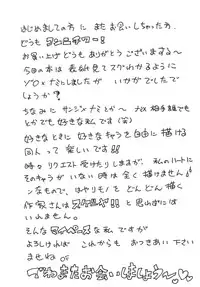 はじめましての方に またお会いしちゃった方
どうも
お買い上げ どうもありがとうございます〜
今回の本は 表紙見てスグわかるように
ゾロ×ナミにしましたが いかがでしたで
しょうか?
ちなみに サンジ×ナミとか 〜 ナミ×相手誰でも
とかでも 好きな私です(笑)
好きなときに 好きなキャラを自由に描ける
同人って 楽しいです
時々リクエスト受けたりしますが、私のハートに
そのキャラが いない時は全く描けません
ンなもので、はやりモノを どんどん描く
作家さんは スゲエ と思わずには
いれません。
そんな マイペースな 私 ですが
よろしければ これからも おつきあい下さい
ませね
でわまたお会いしましょう〜